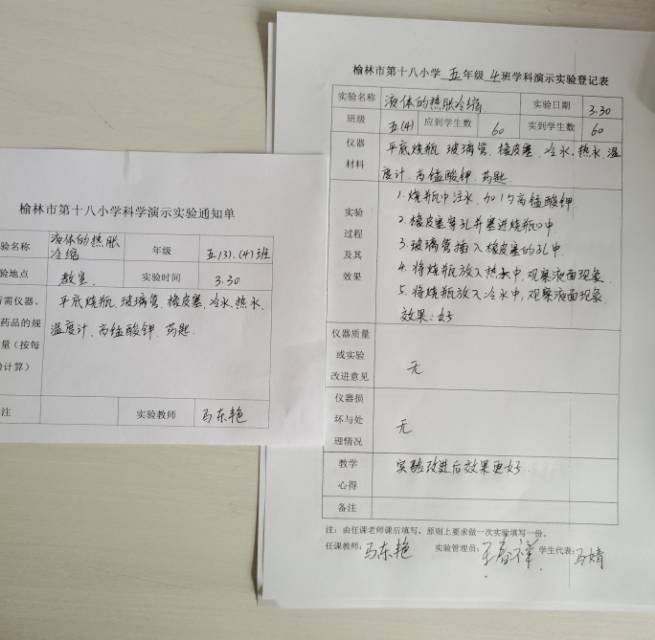 榆林市第十八小学科学演示实验通知单
验名称 液体的热胀冷缩 年级 五(3).(4)班
验地点 教室 实验时间 3.30
需仪器、药品的规
量(按每
计算)
平底烧瓶、玻璃管、橡皮塞、冷水、热水、
温度计、高锰酸钾、药匙
注 实验教师 马东艳
榆林市第十八小学 五 年级 4 班学科演示实验登记表
实验名称 液体的热胀冷缩 实验日期 3.30
班级 五(4) 应到学生数 60 实到学生数 60
仪器材料
平底烧瓶、玻璃管、橡皮塞、冷水、热水、温
度计、高锰酸钾、药匙
实验过程及其效果
1.烧瓶中注水,加1勺高锰酸钾.
2.橡皮塞穿孔并塞进烧瓶口中
3.玻璃管插入橡皮塞的孔中
4.将烧瓶放入热水中,观察液面现象
5.将烧瓶放入冷水中,观察液面现象
效果:好
仪器质量或实验改进意见 无
仪器损坏与处理情况 无
教学心得 实验改进后效果更好.
备注
注:由任课老师课后填写,原则上要求做一次实验填写一份。
任课教师:马东艳 实验管理员:王春祥 学生代表:马婧